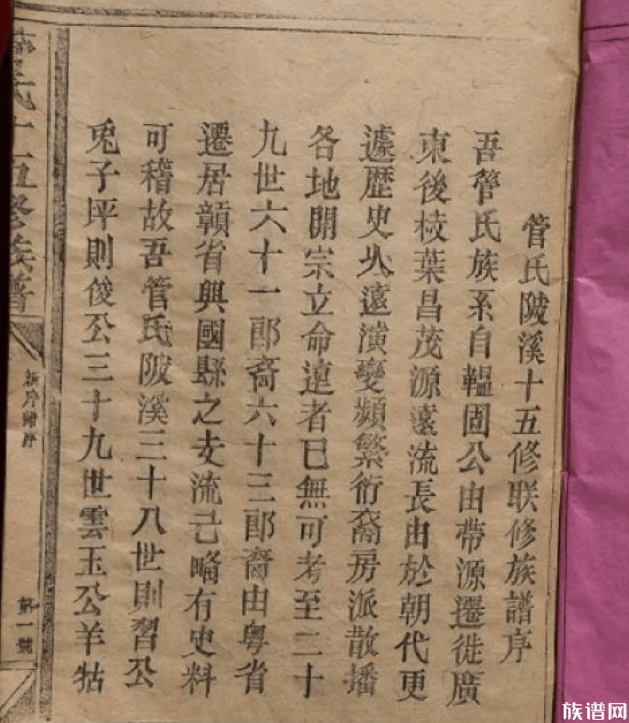 管氏陂溪十五修联修族譜序
吾管氏族系自韞固公由帶源遷徙廣
東後枝葉昌茂源遠流長由於朝代更
遞歷史久遠演變頻繁衍裔房派散播
各地開宗立命遠者已無可考至二十
九世六十一郎裔六十三郎裔由粤省
遷居贛省興國縣之支流已略有史料
可稽故吾管氏陂溪三十八世則習公
兎子坪則俊公三十九世雲玉公羊牯
氏十五修族譜
第一號
族谱网